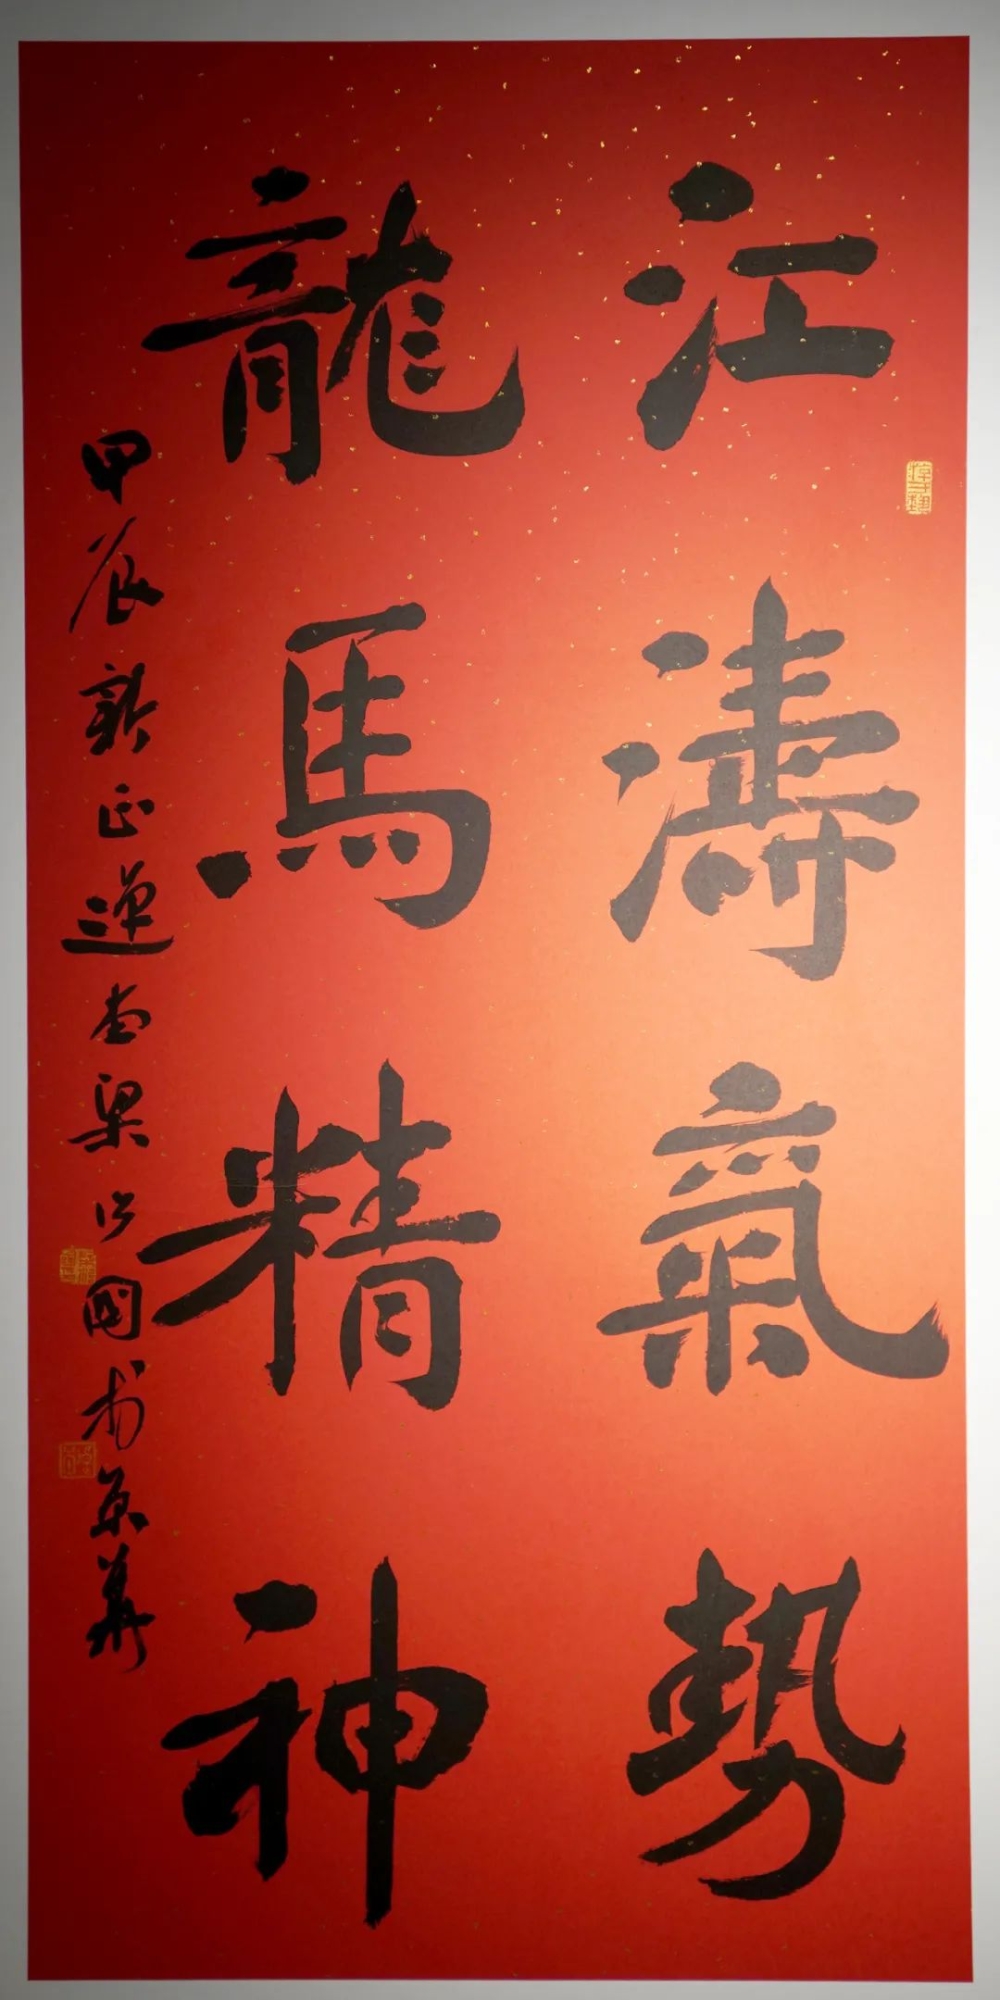 江濤氣勢
龍馬精神
甲辰新正運書梁江國書京華